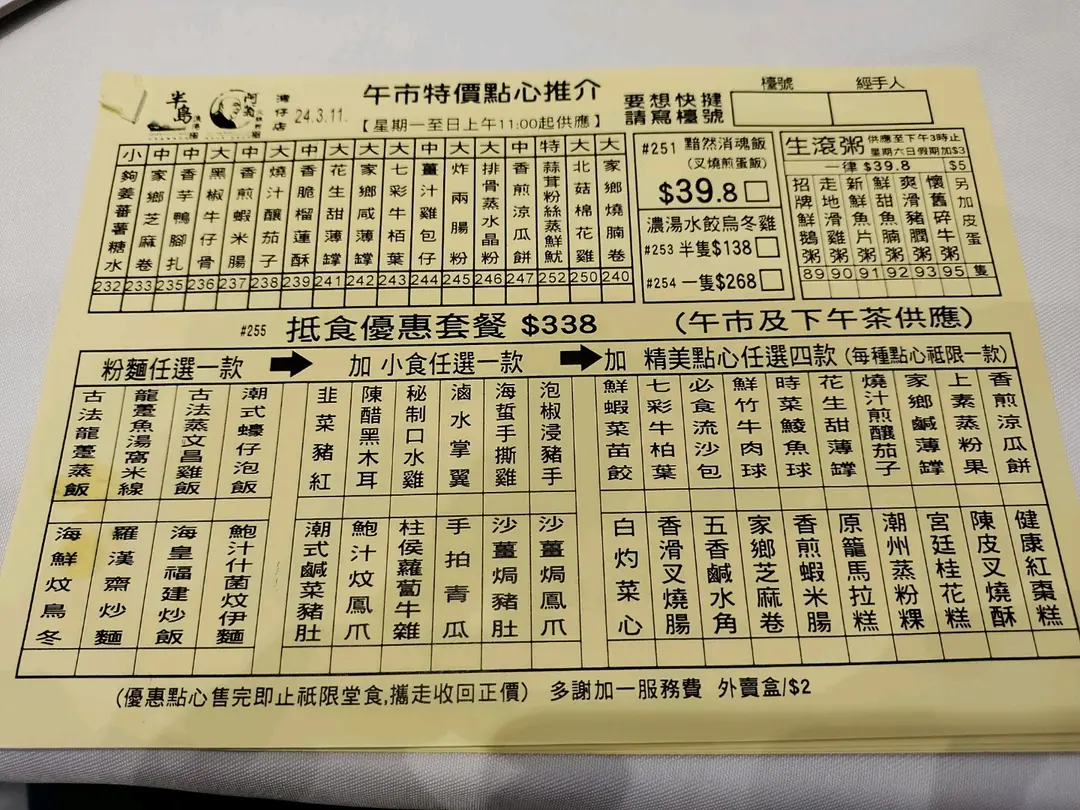 半島
阿翁
灣仔店
24.3.11.
午市特價點心推介
【星期一至日上午11:00起供應】
要想快捷
請寫檯號
檯號
經手人
小 夠姜蕃薯糖水 232
中 家鄉芝麻卷 233
中 香芋鴨腳扎 235
大 黑椒牛仔骨 236
大 香煎蝦米腸 237
大 燒汁釀茄子 238
中 香脆榴蓮酥 239
大 花生甜薄罉 241
大 家鄉咸薄罉 242
大 七彩牛栢葉 243
中 薑汁雞包仔 244
大 炸兩腸粉 245
大 排骨蒸水晶粉 246
中 香煎涼瓜餅 247
特 蒜茸粉絲蒸鮮魷 252
大 北菇棉花雞 250
大 家鄉燒腩卷 240
#251 黯然消魂飯
(叉燒煎蛋飯)
$39.8
濃湯水餃烏冬雞
#253 半隻$138
#254 一隻$268
生滾粥
供應至下午3時止
星期六日假期加$3
一律 $39.8
$5
招牌鮮鵝粥 89
走地滑雞粥 90
新鮮魚片粥 91
鮮甜魚腩粥 92
爽滑豬膶粥 93
懷舊碎牛粥 95
另加皮蛋 隻
#255 抵食優惠套餐 $338 (午市及下午茶供應)
粉麵任選一款
加 小食任選一款
加 精美點心任選四款 (每種點心祇限一款)
古法龍躉蒸飯
龍躉魚湯窩米線
古法蒸文昌雞飯
潮式蠔仔泡飯
韭菜豬紅
陳醋黑木耳
秘制口水雞
滷水掌翼
海蜇手撕雞
泡椒浸豬手
鮮蝦菜苗餃
七彩牛柏葉
必食流沙包
鮮竹牛肉球
時菜鯪魚球
花生甜薄罉
燒汁煎釀茄子
家鄉鹹薄罉
上素蒸粉果
香煎涼瓜餅
海鮮炆烏冬
羅漢齋炒麵
海皇福建炒飯
鮑汁什菌炆伊麵
潮式鹹菜豬肚
鮑汁炆鳳爪
柱侯蘿蔔牛雜
手拍青瓜
沙薑焗豬肚
沙薑焗鳳爪
白灼菜心
香滑叉燒腸
五香鹹水角
家鄉芝麻卷
香煎蝦米腸
原籠馬拉糕
潮州蒸粉粿
宮廷桂花糕
陳皮叉燒酥
健康紅棗糕
(優惠點心售完即止祇限堂食,攜走收回正價) 多謝加一服務費 外賣盒/$2